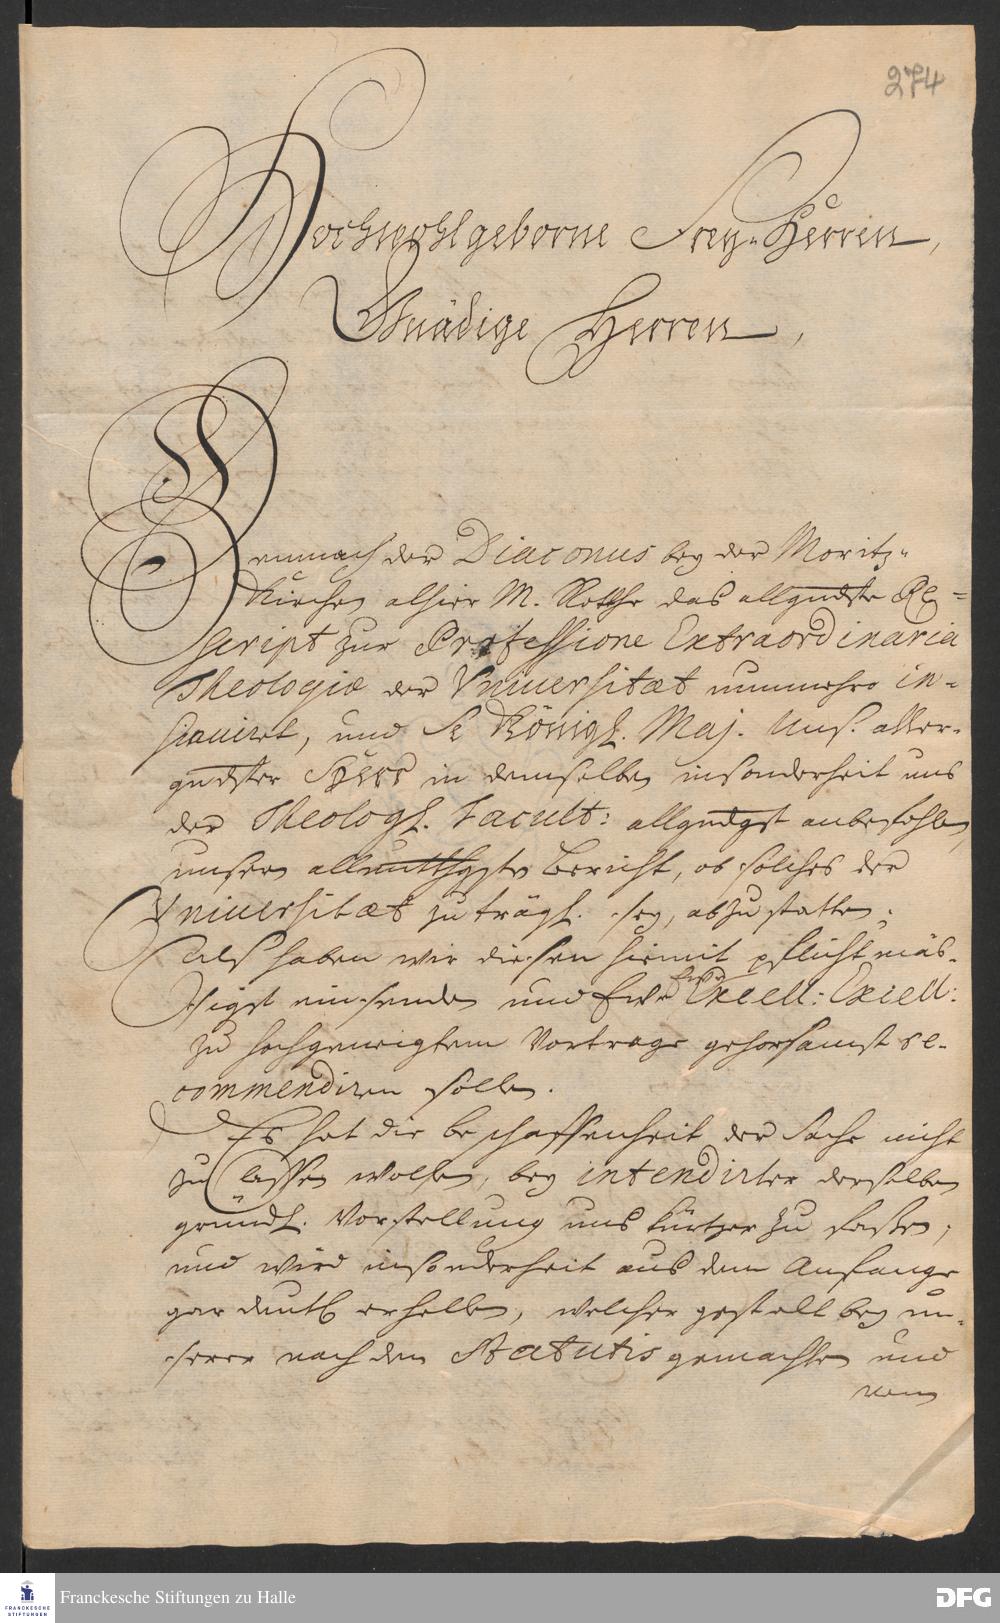 274
Hochwohlgeborne Frey-Herren,
Gnädige Herren,
Demnach der Diaconus bey der Moritz-
Kirchen alhier M. Rothe das allgndste Re-
script zur Professione Extraordinaria
Theologiæ der Vniuersitæt nunmehro in-
sinuiret, und Se Königl. Maj. Uns. aller-
gndster Herr in demselben insonderheit uns
der Theologl. Facult: allgndgst anbefohlen,
unsern alleruntthgsten Bericht, ob solches der
Vniuersitæt zuträgl. sey, abzustatten;
Als haben wir diesen hiemit pflichtmäs-
sigst einsenden und Ewr Ewr Excell: Excell:
zu hochgeneigtem Vortrage gehorsamst re-
commendiren sollen.
Es hat die beschaffenheit der Sache nicht
zu lassen wollen, bey intendirter derselben
gründl. Vorstellung uns kürtzer zu fassen,
und wird insonderheit aus dem Anfange
gar deutl. erhellen, welcher gestalt bey un-
serer nach den Statutis gemachten und
von
Franckesche Stiftungen zu Halle
FRANCKESCHE
STIFTUNGEN
DFG